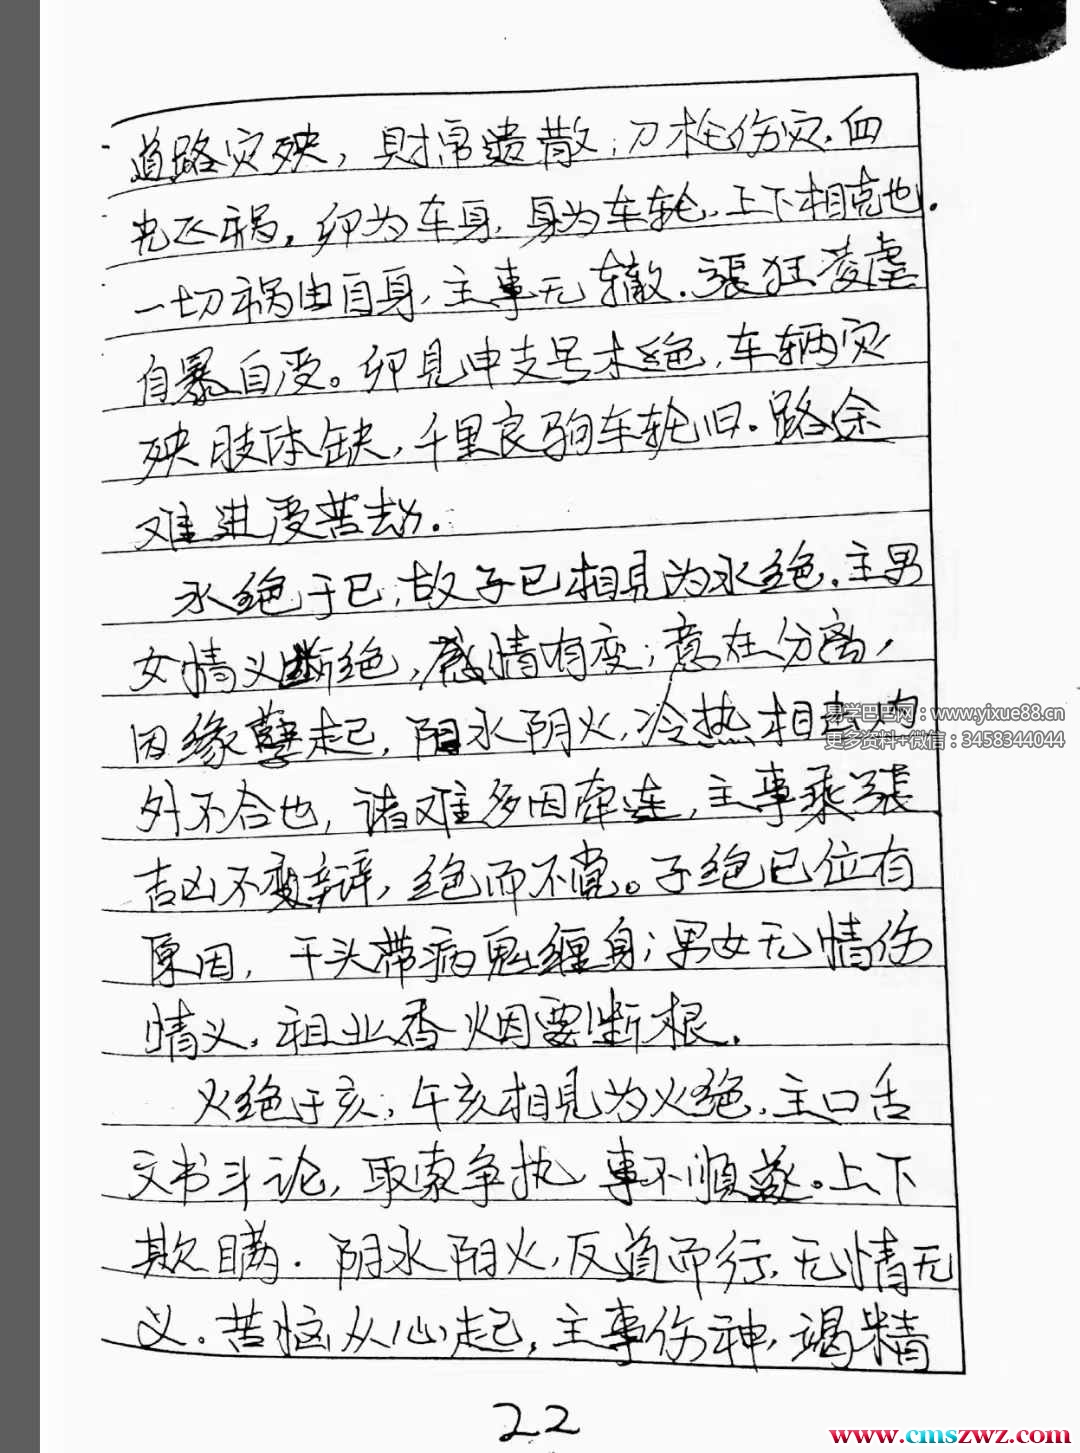 道路灾殃，财帛遗散；刀枪伤灾，血
光飞祸。卯为车身，身为车轮，上下相克也。
一切祸由自身，主事无辙。張狂凌虐
自暴自受。卯見申支号木绝，车辆灾
殃肢体缺，千里良驹车轮旧。路途
难进受苦劫。
水绝于巳；故子巳相見为水绝，主男
女情义断绝，感情有变；意在分离，
因缘孽起，阳水阴火，冷热相 内
外不合也，诸难多因牵连，主事乘張
吉凶不变辩，绝而不觉。子绝巳位有
原因，干头带病鬼缠身；男女无情伤
情义，祖业香烟要断根。
火绝于亥；午亥相見为火绝，主口舌
文书斗讼，取索争执 事不順遂。上下
欺瞒．阴水阳火，反道而行，无情无
义。苦恼从心起，主事伤神，竭精
22
易学巴巴网：www.yixue88.cn
更多资料+微信：3458344044
www.cmszwz.com